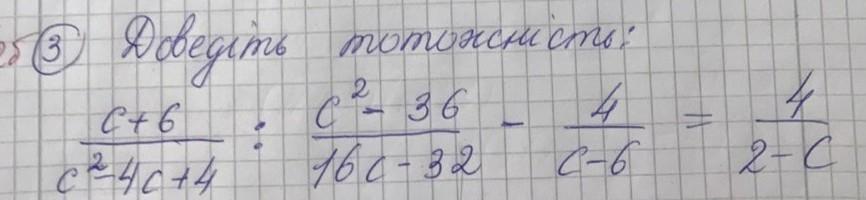 ③ Доведіть тотожність:
(c+6)/(c²-4c+4) : (c²-36)/(16c-32) - 4/(c-6) = 4/(2-c)